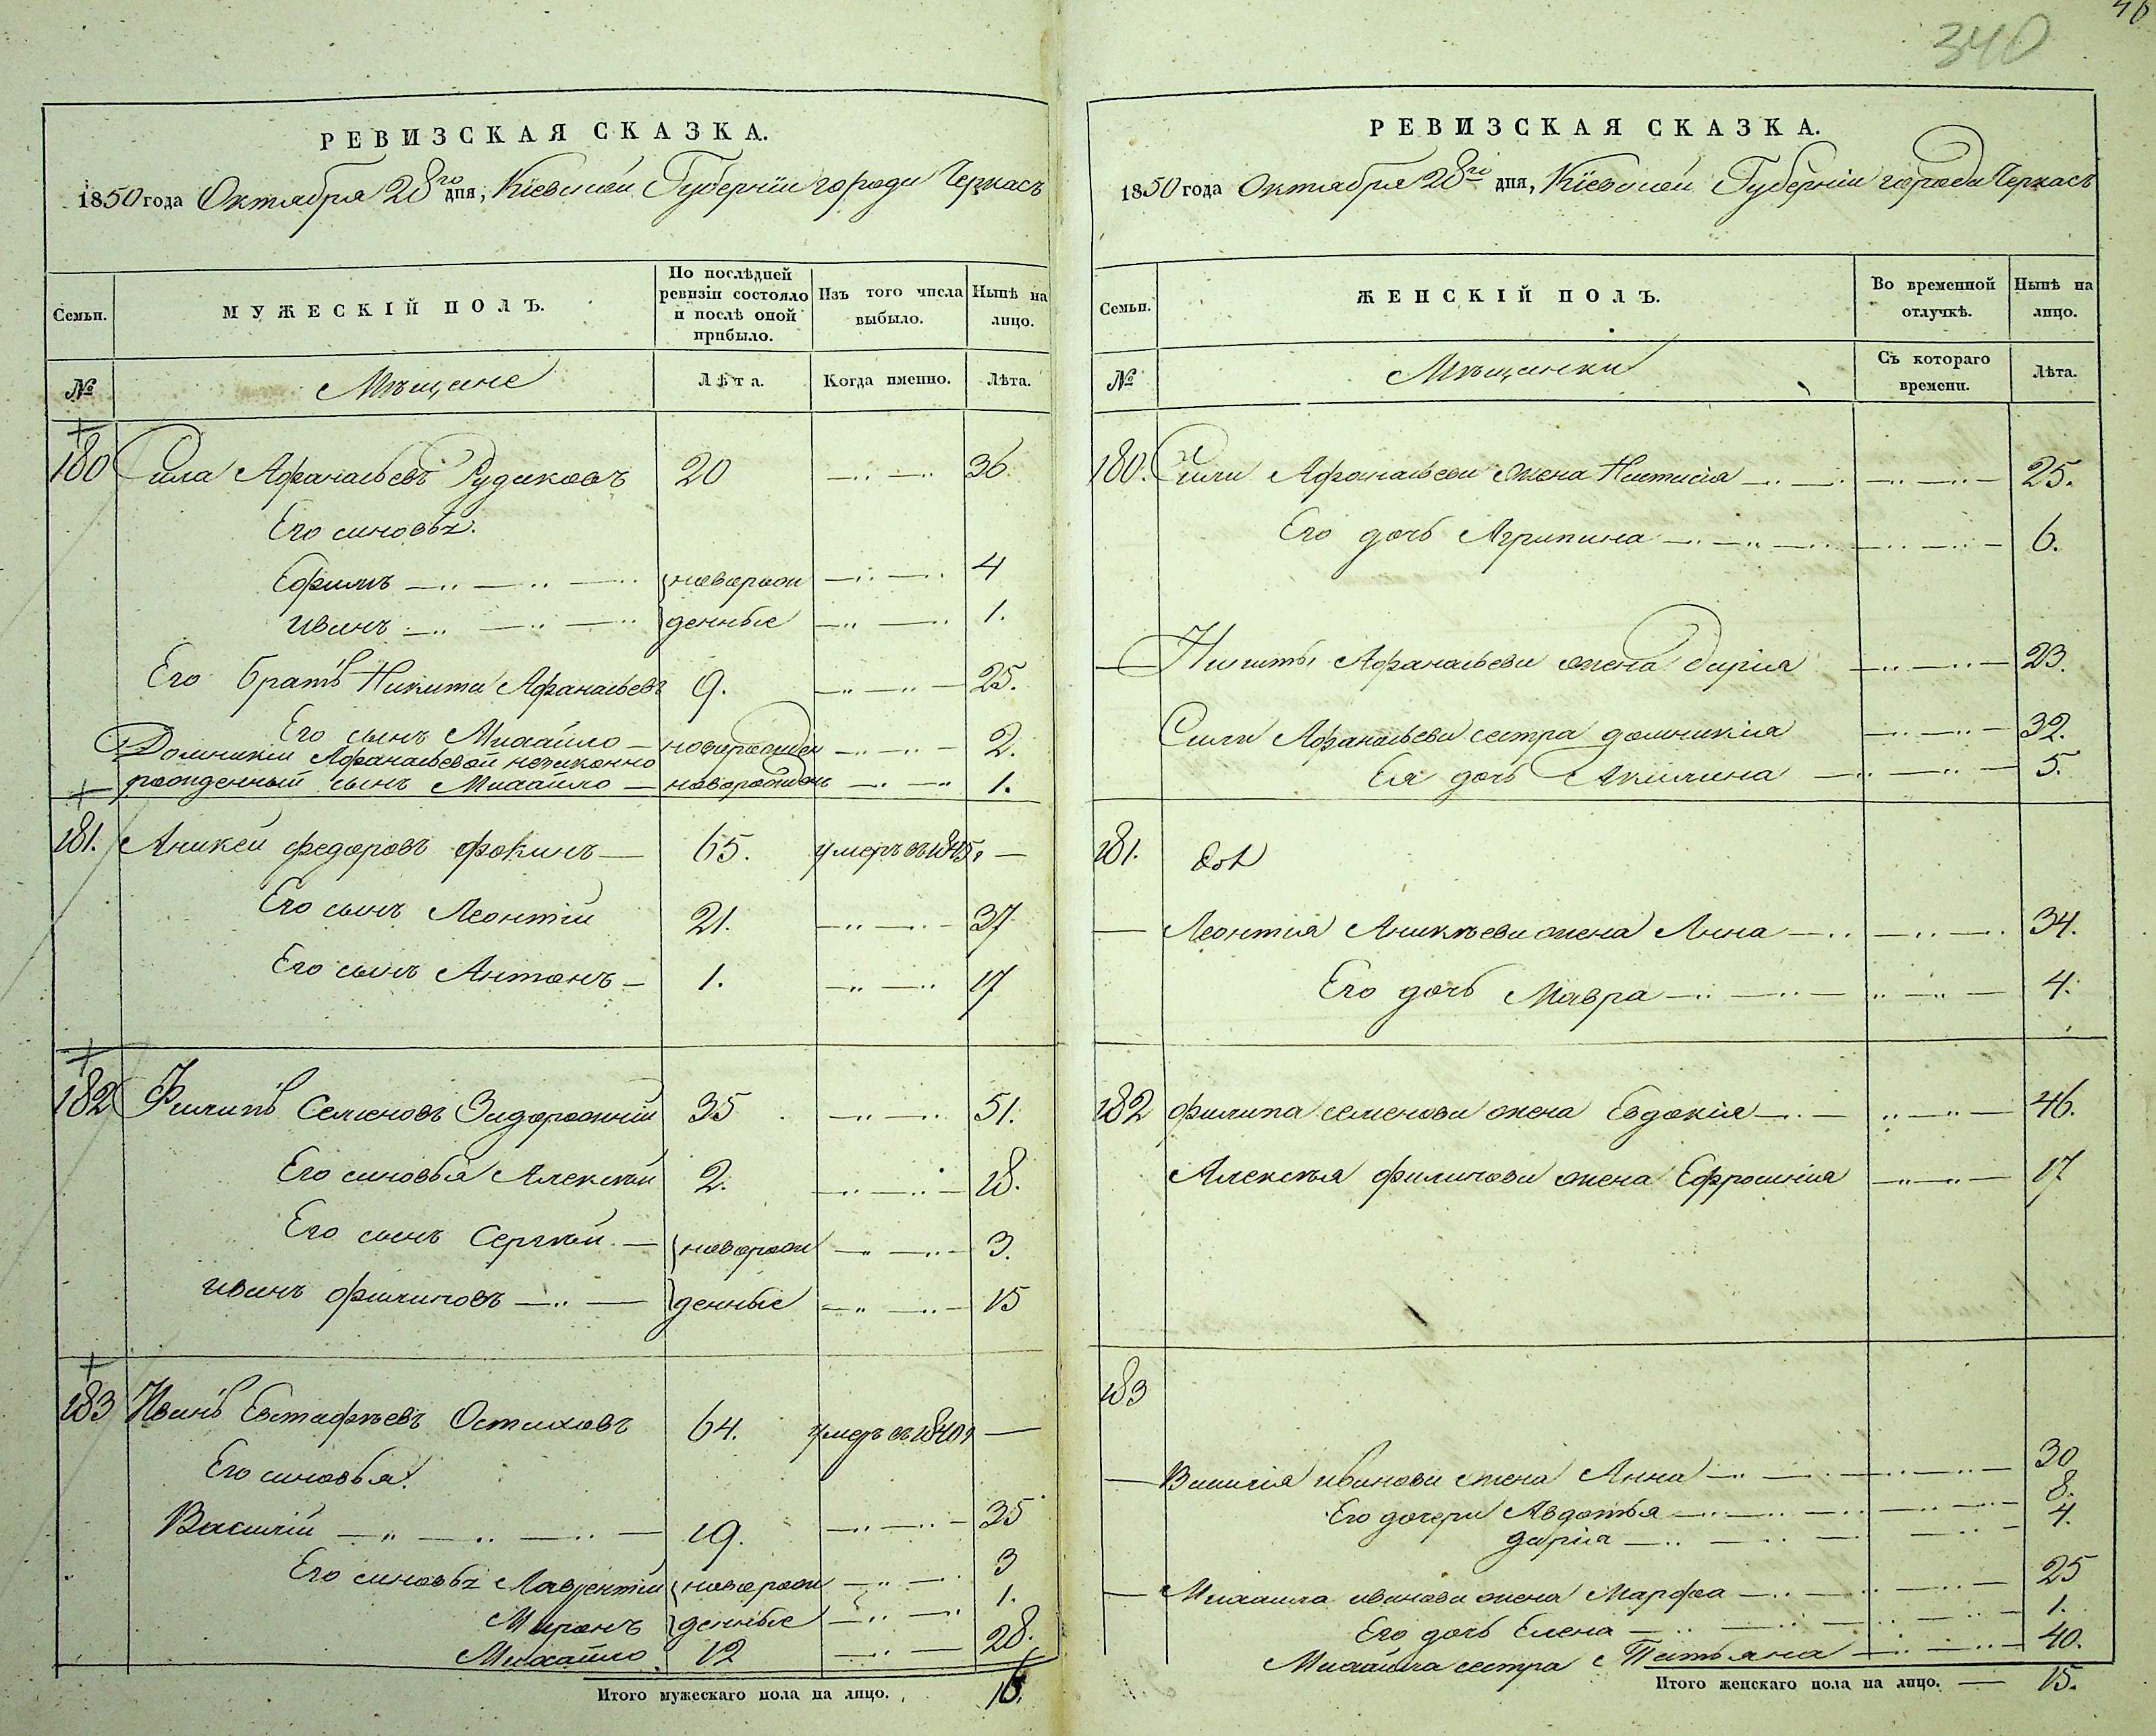 340
РЕВИЗСКАЯ СКАЗКА.
1850 года Октября 28го дня, Кіевской Губерніи города Черкасъ
Семьи.
МУЖЕСКІЙ ПОЛЪ.
По послѣдней ревизіи состояло и послѣ оной прибыло.
Изъ того числа выбыло.
Нынѣ на лицо.
№
Мѣщане
Лѣта.
Когда именно.
Лѣта.
180 Сила Афанасьевъ Рудаковъ 20 36.
Его синовья.
Ефимъ новорож 4
Иванъ денные 1.
Его братъ Никита Афанасьевъ 9. 25.
Его сынъ Михайло новорожден 2.
Домникіи Афанасьевой незаконно
рожденный сынъ Михайло новорожденъ 1.
181. Аникей Федоровъ Фокинъ 65. умеръ въ 1845. —
Его сынъ Леонтій 21. 37
Его сынъ Антонъ 1. 17
182 Филипъ Семеновъ Задорожній 35 51.
Его синовья Алексѣй 2. 18.
Его сынъ Сергѣй новорож 3.
Иванъ Филиповъ денные 15
183 Иванъ Евстафѣевъ Остаховъ 64. умеръ въ 1840 —
Его синовья.
Василій 19. 35
Его синовья Лаврентій новорож 3
Миронъ денные 1.
Михайло 12 28.
Итого мужескаго пола на лицо. 16.
РЕВИЗСКАЯ СКАЗКА.
1850 года Октября 28го дня, Кіевской Губерніи города Черкасъ
Семьи.
ЖЕНСКІЙ ПОЛЪ.
Во временной отлучкѣ.
Нынѣ на лицо.
№
Мѣщанки
Съ котораго времени.
Лѣта.
180. Силы Афанасьева жена Настасія 25.
Его дочь Агрипина 6.
Никиты Афанасьева жена Дарія 23.
Силы Афанасьева сестра Домникія 32.
Ея дочь Акилина 5.
181.
Леонтія Аникѣева жена Анна 34.
Его дочь Мавра 4.
182 Филипа Семенова жена Евдокія 46.
Алексѣя Филипова жена Ефросинія 17
183
Василія Иванова жена Анна 30
Его дочери Авдотья 8.
Дарія 4.
Михаила Иванова жена Марфа 25
Его дочь Елена 1.
Михайла сестра Татьяна 40.
Итого женскаго пола на лицо. — 15.